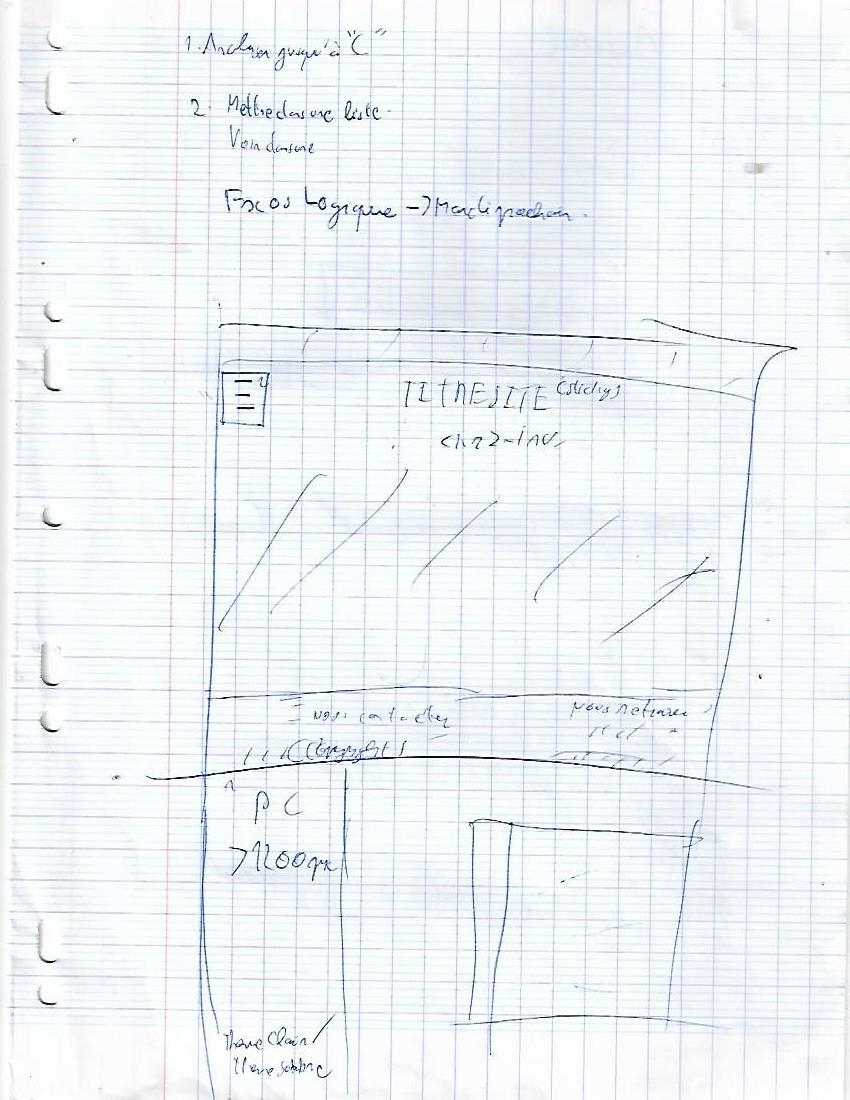 1. Analyser jusqu'à "C"
2. Mettre dans une liste
Voir dans une
Focos Logique → Mardi prochain.
TITRESITE (stichy)
Nous contacter
Nous retrouver
Copyrights
PC
>1200px
Theme Clair/
Theme sombre